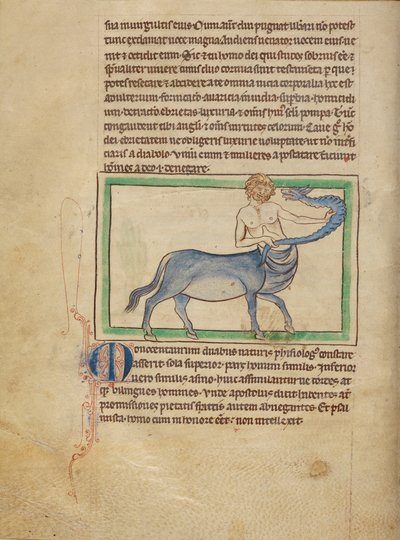 sua in virgultis eius. Cum aut dui pugnat libari no potest
tunc exclamat uoce magna. Audiens uenator uocem eius ue
nit & occidit eum. Sic & tu homo dei qui studes sobrius ee &
spiritaliter uiuere cuius duo cornua sunt testamenta per que
potes resecare & abscidere a te omnia uicia corporalia hoc est
adulterium fornicatio auaricia inuidia supbia homicidium
detractio ebrietas luxuria & omis hui seculi pompa. Tunc
congaudent tibi angli & omis uirtutes celorum. Caue g homo
dei ebrietatem ne obligeris luxurie uoluptate ut no interfi
ciaris a diabolo. Vinum enim & mulieres apostatare faciunt
homines a deo & denegare.
Onocentaurum duabus naturis phisiologus constare
asserit. sola superior pars homini similis. Inferior
uero similis asino. huic assimilantur uecordes at
que bilingues homines. unde apostolus dicit. habentes at
promissiones pietatis uirtutem autem abnegantes. Et psal
mista. homo cum in honore eet non intellexit.